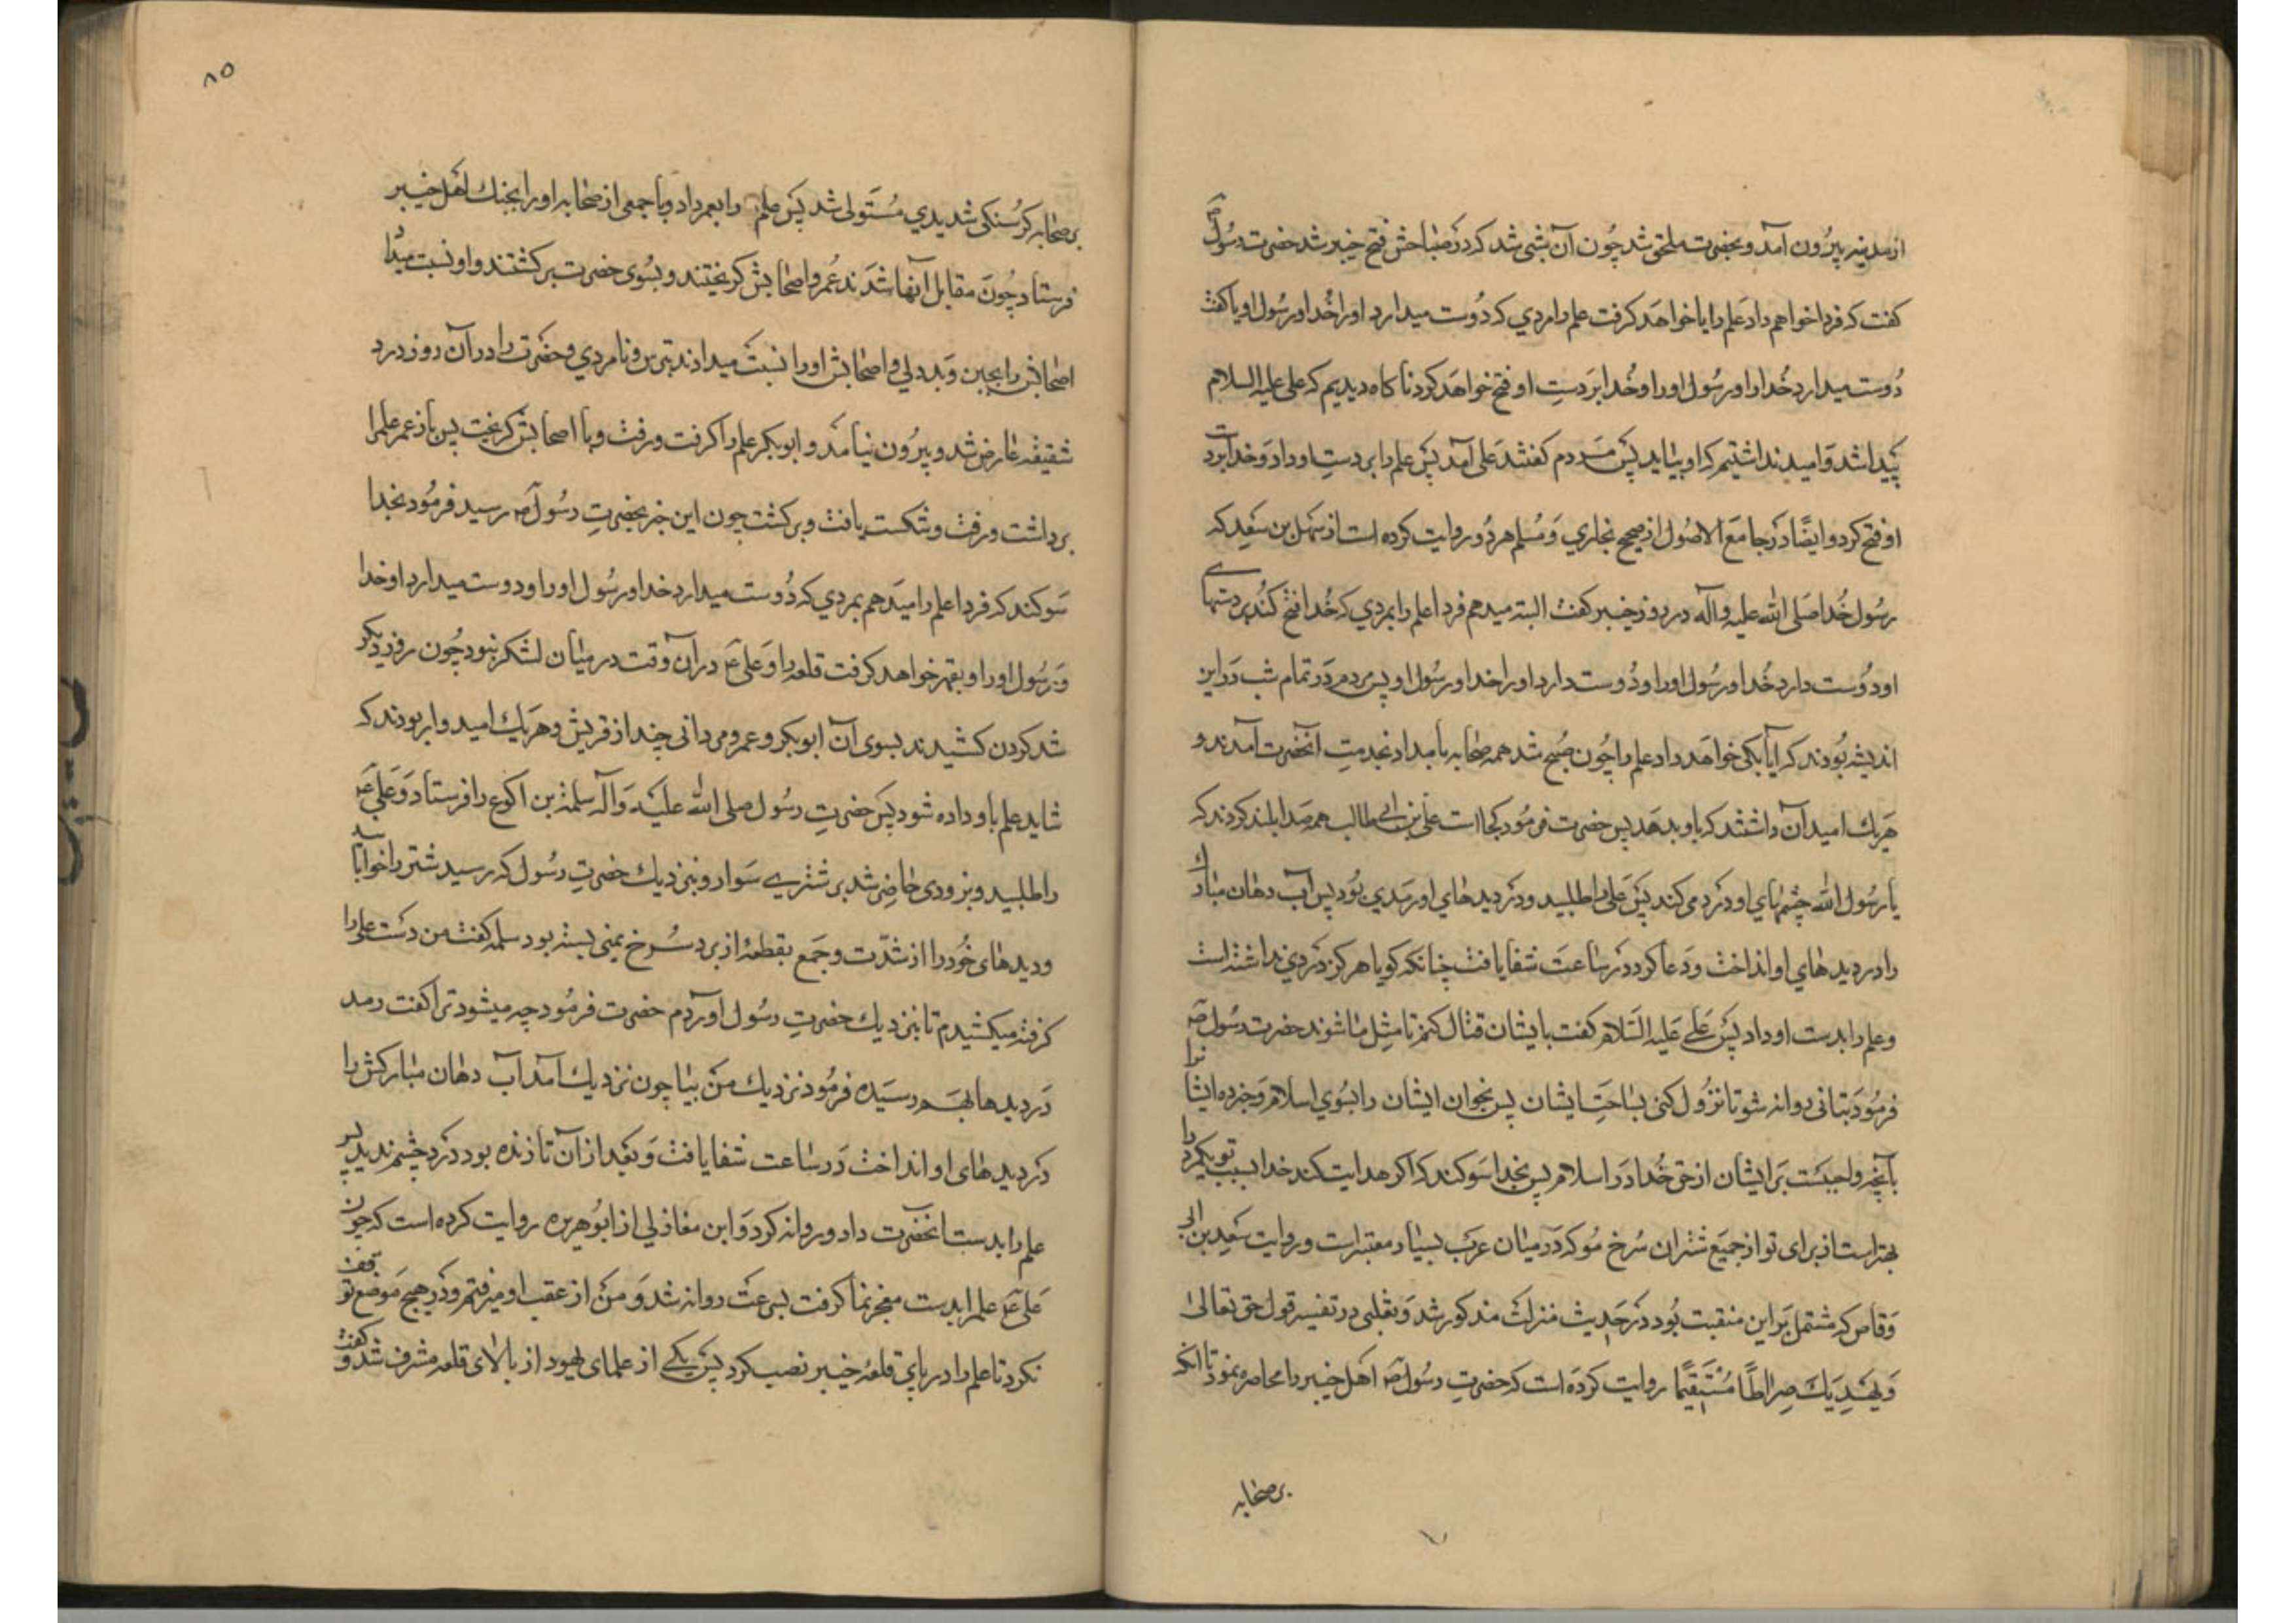 از مدینه بیرون آمد و بحضرت ملحق شد چون آن شبی شد که در صباحش فتح خیبر شد حضرت رسول ص
کفت که فردا خواهم داد علم را یا خواهد کرفت علم را مردی که دوست میدارد او را خدا و رسول او یا کفت
دوست میدارد خدا را و رسول او را و خدا بر دست او فتح خواهد کرد ناکاه دیدیم که علی علیه السلام
پیدا شد و امید نداشتیم که او بیاید پس مردم کفتند علی آمد پس علم را بر دست او داد و خدا بر دست
او فتح کرد و ایضًا در جامع الاصول از صحیح بخاری و مسلم هر دو روایت کرده است از سهل بن سعید که
رسول خدا صلی الله علیه و آله در روز خیبر کفت البته میدهم فردا علم را بمردی که خدا فتح کند بر دستهای
او دوست دارد خدا و رسول او را و دوست دارد او را خدا و رسول او پس مردم در تمام شب در این
اندیشه بودند که آیا بکی خواهد داد علم را چون صبح شد همه صحابه بامداد بخدمت آنحضرت آمدند و
هریك امید آن داشتند که باو بدهد پس حضرت فرمود کجا است علی بن ابی طالب همه صدا بلند کردند که
یا رسول الله چشمهای او درد می کند پس علی را طلبید و در دیدهای او رمدی بود پس آب دهان مبارك
را در دیدهای او انداخت و دعا کرد در ساعت شفا یافت چنانکه کویا هرکز دردی نداشته است
و علم را بدست او داد پس علی علیه السلام کفت با ایشان قتال کنم تا مثل ما شوند حضرت رسول ص
فرمود بتانی روانه شو تا نزول کنی بساحت ایشان پس بخوان ایشان را بسوی اسلام و خبر ده ایشا نرا
بآنچه واجبست بر ایشان از حق خدا در اسلام پس بخدا سوکند که اکر هدایت کند خدا بسبب تو یکمرد را
بهتر است از برای تو از جمیع شتران سرخ مو که در میان عرب بسیار معتبر است و روایت سعید بن ابی
وقاص که مشتمل بر این منقبت بود در حدیث منزلت مذکور شد و ثعلبی در تفسیر قول حق تعالی
و یهدیك صراطًا مستقیمًا روایت کرده است که حضرت رسول ص اهل خیبر را محاصره نمود تا آنکه
بر صحابه
۸۵
بر صحابه کرسنکی شدیدی مستولی شد پس علم را بعمر داد و با جمعی از صحابه او را بجنك اهل خیبر
فرستاد چون مقابل آنها شدند عمر و اصحابش کریختند و بسوی حضرت برکشتند و او نسبت میداد
اصحابش را بجبن و بددلی و اصحابش او را نسبت میدادند بترس و نامردی و حضرت را در آن روز درد
شقیقه عارض شد و بیرون نیامد و ابوبکر علم را کرفت و رفت و با اصحابش کریخت پس باز عمر علم را
برداشت و رفت و شکست یافت و برکشت چون این خبر بحضرت رسول ص رسید فرمود بخدا
سوکند که فردا علم را میدهم بمردی که دوست میدارد خدا و رسول او را و دوست میدارد او خدا
و رسول او را و بقهر خواهد کرفت قلعه را و علی ع در آن وقت در میان لشکر نبود چون روز دیکر
شد کردن کشیدند بسوی آن ابوبکر و عمر و مردانی چند از قریش و هریك امیدوار بودند که
شاید علم باو داده شود پس حضرت رسول صلی الله علیه و آله سلمة بن اکوع را فرستاد و علی ع
را طلبید و بزودی حاضر شد بر شتری سوار و بنزدیك حضرت رسول که رسید شتر را خوابانید
و دیدهای خود را از شدت وجع بقطعه از برد سرخ یمنی بسته بود سلمه کفت من دست علی را
کرفته میکشیدم تا بنزدیك حضرت رسول آوردم حضرت فرمود چه میشود ترا کفت رمد
در دیدها بهم رسیده فرمود نزدیك من بیا چون نزدیك آمد آب دهان مبارکش را
در دیدهای او انداخت در ساعت شفا یافت و بعد از آن تا زنده بود درد چشم ندید پس
علم را بدست آنحضرت داد و روانه کرد و ابن مغازلی از ابوهریره روایت کرده است که چون
علی ع علم را بدست معجز نما کرفت بسرعت روانه شد و من از عقب او میرفتم و در هیچ موضع توقف
نکرد تا علم را در پای قلعه خیبر نصب کرد پس یکی از علمای یهود از بالای قلعه مشرف شد و کفت